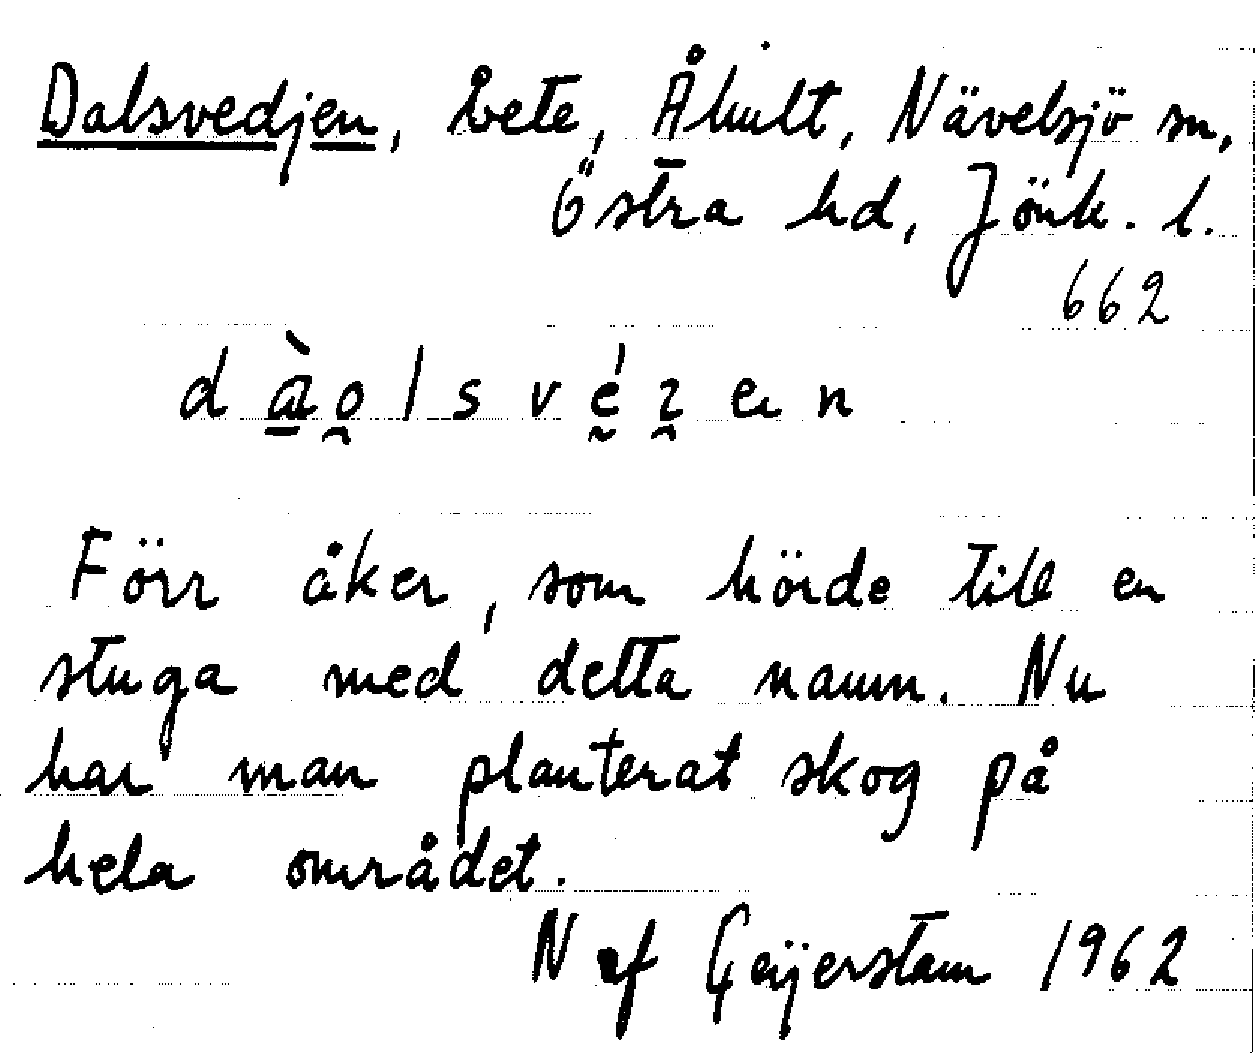 Dalsvedjen, bete, Åhult, Nävelsjö sn,
Östra hd, Jönk. l.
662
Förr åker, som hörde till en
stuga med detta namn. Nu
har man planterat skog på
hela området.
N af Geijerstam 1962